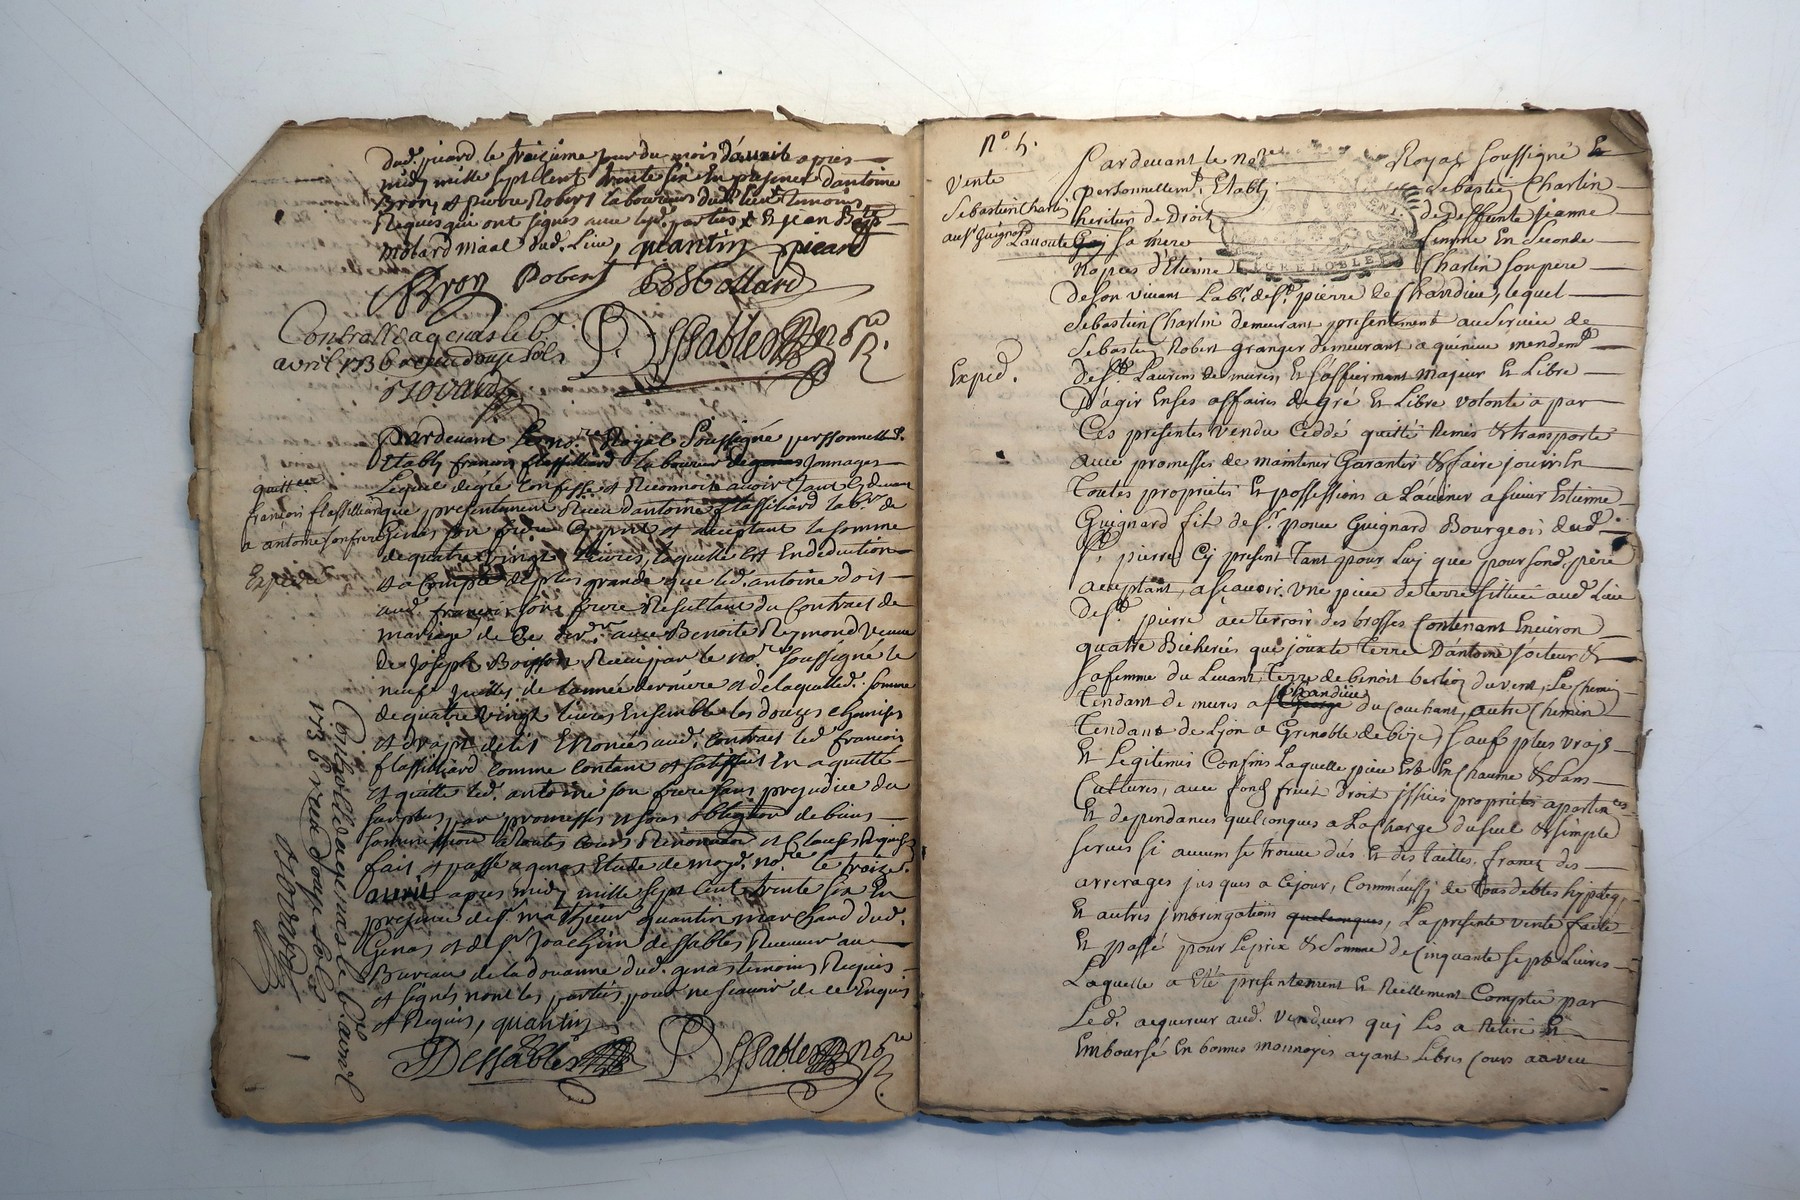 dud. picard le troisieme jour du mois d'avril apres
midy mille sept cent trente six En presence d'antoine
Bron, et pierre Robert laboureurs dud. lieu temoins
Requis qui ont signés avec lesd. parties & Et jean Bpte
molard maal dud. Lieu, quantin picard
Bron Robert JB Mollard
Controllé a genas le 6e
avril 1736 reçu douze sols
P. Dessables no.re R.
Pardevant le no.re Royal Soussigné personnellem.t
Etably françois flassilliard laboureur Jonnages
Lequel de gré confesse et Reconnoit avoir
que presentement Reçu d'antoine flassilliard lab.r de
Genas son frere Cy p.nt et acceptant la somme
de quatre vingt Livres, laquelle Est En deduction
Et a Compte de plus grande que led. antoine doit
aud. françois son frere Resultant du Contract de
mariage de Ce der.er avec Benoite Reymond veuve
de Joseph Boisson Reçu par le no.re soussigné le
neuf de l'année derniere et de laquelle d. somme
de quatre vingt livres Ensemble les douze chemises
et drapt de lit Enoncés aud. contract led. françois
flassilliard comme contant et satisfait En a quitté
et quitte led. antoine son frere sans prejudice du
surplus, par promesses et sous obligaôn de biens
soumission a toutes cours Renonciaôn et Clauses Requises
fait et passé a genas Etude de moyd. no.re le troize.e
avril apres midy mille sept Cent trente six En
presence de s.r mathieu quantin marchand dud.
Genas et de s.r Joachim dessables Receveur au
Bureau de la douanne dud. genas temoins Requis
et signés non les parties pour ne sçavoir de ce Enquis
et Requis, quantin
JDessables P. Dessables no.re R.
quittance
françois flassilliard
a antoine son frere
Expedié
Controllé a genas le 6e avril
1736 reçu douze sols
N.o 5.
vente
Sebastien Charlin
au s.r Guignard
Exped.
Pardevant le no.re Royal soussigné Et
personnellem.t Etably Sebastien Charlin
heritier de Droit de deffunte jeanne
sa mere femme En seconde
Nopces d'Etienne Charlin son pere
GRENOBLE
de son vivant Lab.r de s.t pierre de Chandieu, lequel
Sebastien Charlin demeurant presentement au service de
Sebastien Robert granger demeurant a mendem.t
de s.t Laurens de mures, Et s'affirmant majeur Et Libre
D'agir En ses affaires de gré Et Libre volonté a par
Ces presentes vendu Ceddé quitté Remis & transporté
avec promesses de maintenir Garantir & faire jouir En
Toutes proprietés Et possessions a L'avenir a sieur Estienne
Guignard fils de s.r Guignard Bourgeois dud.
s.t pierre Cy present Tant pour Luy que pour sond. pere
acceptant, a sçavoir. Une piece de terre sittuée aud. Lieu
de s.t pierre au terroir des brosses Contenant Environ
quatre Bicherées qui jouxte terre D'antoine &
sa femme du Levant, Terre de benoit berlioz du vent, Le chemin
Chandieu
Tendant de mures a s.t George du Couchant, autre Chemin
Tendant de Lyon a Grenoble de bize, sauf plus vrays
Et Legitimes Confins Laquelle piece Est En Chaume & sans
Cultures, avec fonds fruit droit issües proprietés apartin.ces
Et dependances quelconques a La Charge du seul & simple
servis si aucun se trouve düs Et des tailles. francq des
arrerages jusques a Cejour, Comm'aussy de tous debtes hypoteq.
Et autres jmbringations quelconques, La presente vente faite
Et passé pour Le prix & somme de Cinquante sept Livres
Laquelle a Eté presentement Et Réellement Comptée par
Led. acquereur aud. vendeur quj Les a Retiré Et
Emboursé En bonnes monnoyes ayant Libres Cours